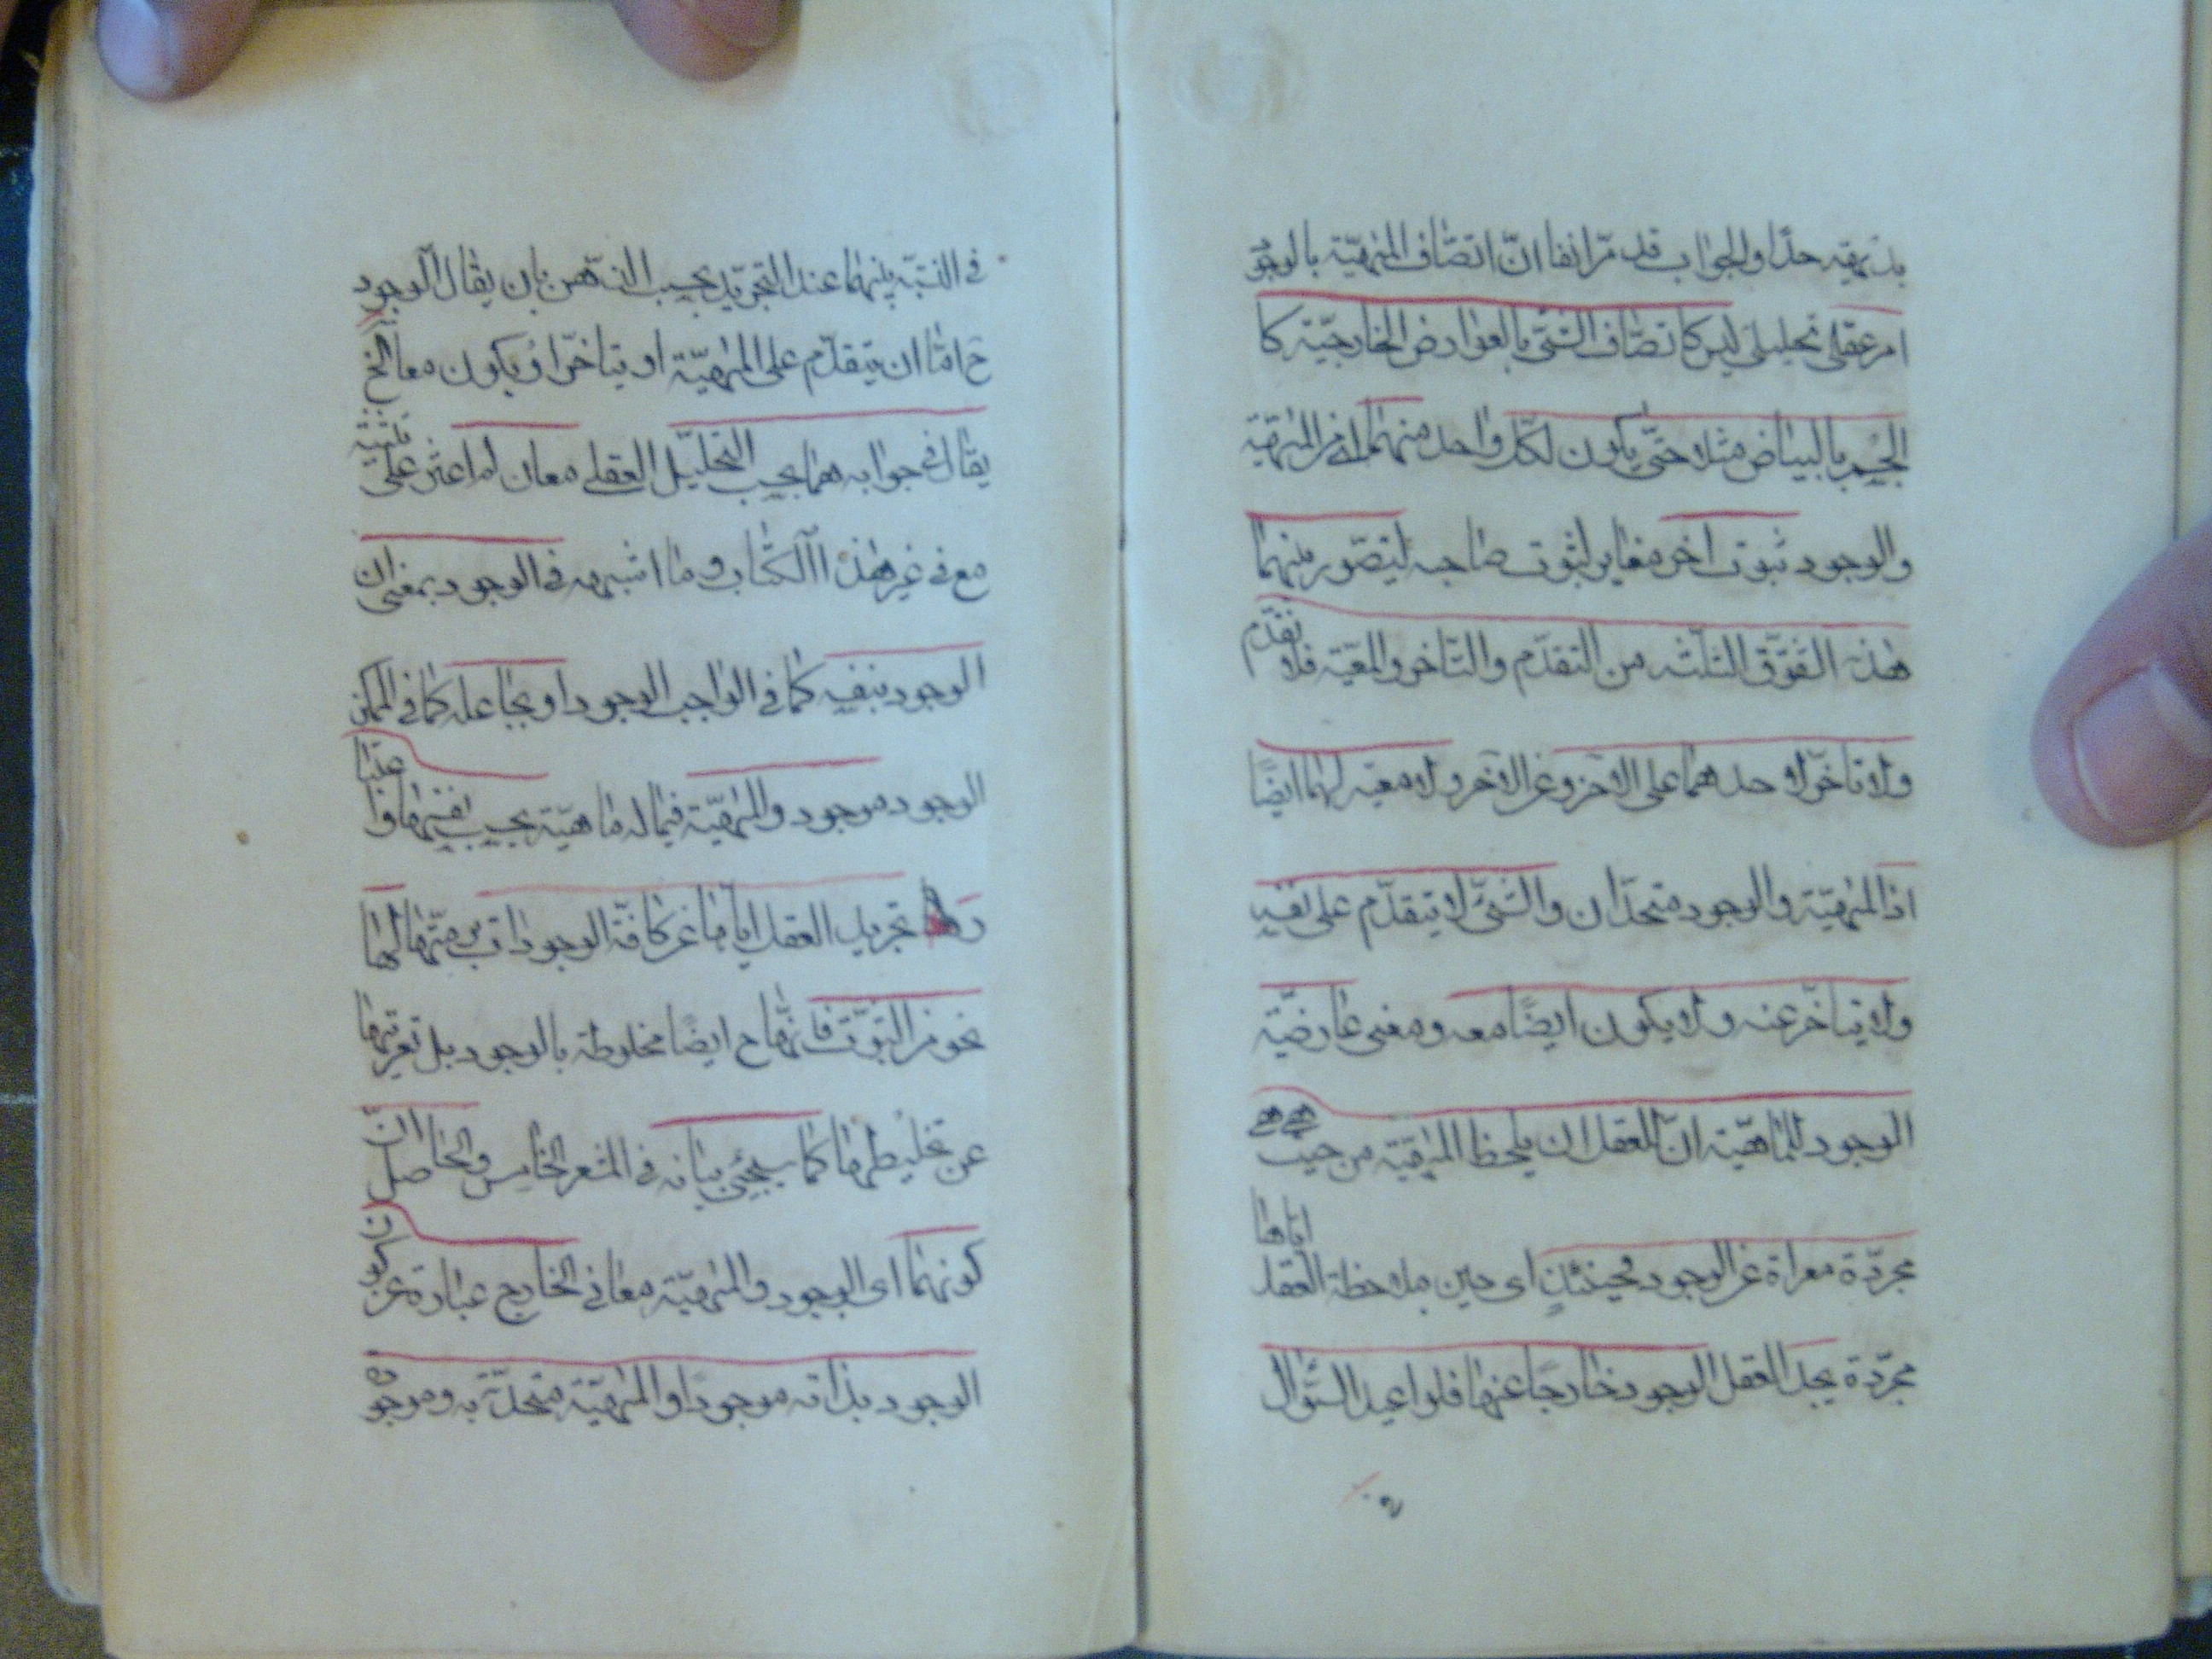 بديهية جدّا والجواب قد مرّ انفا انّ اتصّاف المهيّة بالوجود
امر عقلى تحليلى ليس كاتصّاف الشئ بالعوارض الخارجيّة كا
الجسم بالبياض مثلا حتّى يكون لكلّ واحد منهما اى من المهيّة
والوجود ثبوت اخر مغاير لثبوت صاحبه ليتصّور بينهما
هذه الثلثه من التقدّم والتّاخر والمعيّة فلا تقدّم
ولا تاخّر لاحدهما على الاخر وعن الاخر ولا معيّه لهما ايضًا
اذ المهيّة والوجود متحدّان والشئ لا يتقدّم على نفسه
ولا يتاخّر عنه ولا يكون ايضًا معه ومعنى عارضيّة
الوجود للماهيّة انّ للعقل ان يلحظ المهيّة من حيث هى هى
مجرّدة معراة عن الوجود فحينئذٍ اى حين ملاحظة العقل اياها
مجرّدة يجد العقل الوجود خارجًا عنها فلو اعيد السّؤال
فى النسبّة بينهما عند التجريد بحسب الذهن بان يقال الوجود
ح امّا ان يتقدّم على المهيّة او يتاخّر او يكون معا الخ
يقال فى جوابه هما بحسب التحليل العقلى معان لم اعثر على
مع فى غير هذا الكتاب وما اشبهه فى الوجود بمعنى ان
الوجود بنفسه كما فى الواجب الوجود او بجاعله كما فى الممكن
الوجود موجود والمهيّة فيما له ماهيّة بحسب نفسها واعتبا
ر تجريد العقل اياها عن كافّة الوجودات لها
نحو من الثبوت فانّها ح ايضًا مخلوطة بالوجود بل تعريتها
عن تخليطها كما سيجئ بيانه فى المشعر الخامس والحاصل انّ
كونهما اى الوجود والمهيّة معا فى الخارج عبارة عن كون
الوجود بذاته موجودًا والمهيّة متحدّة به وموجوده